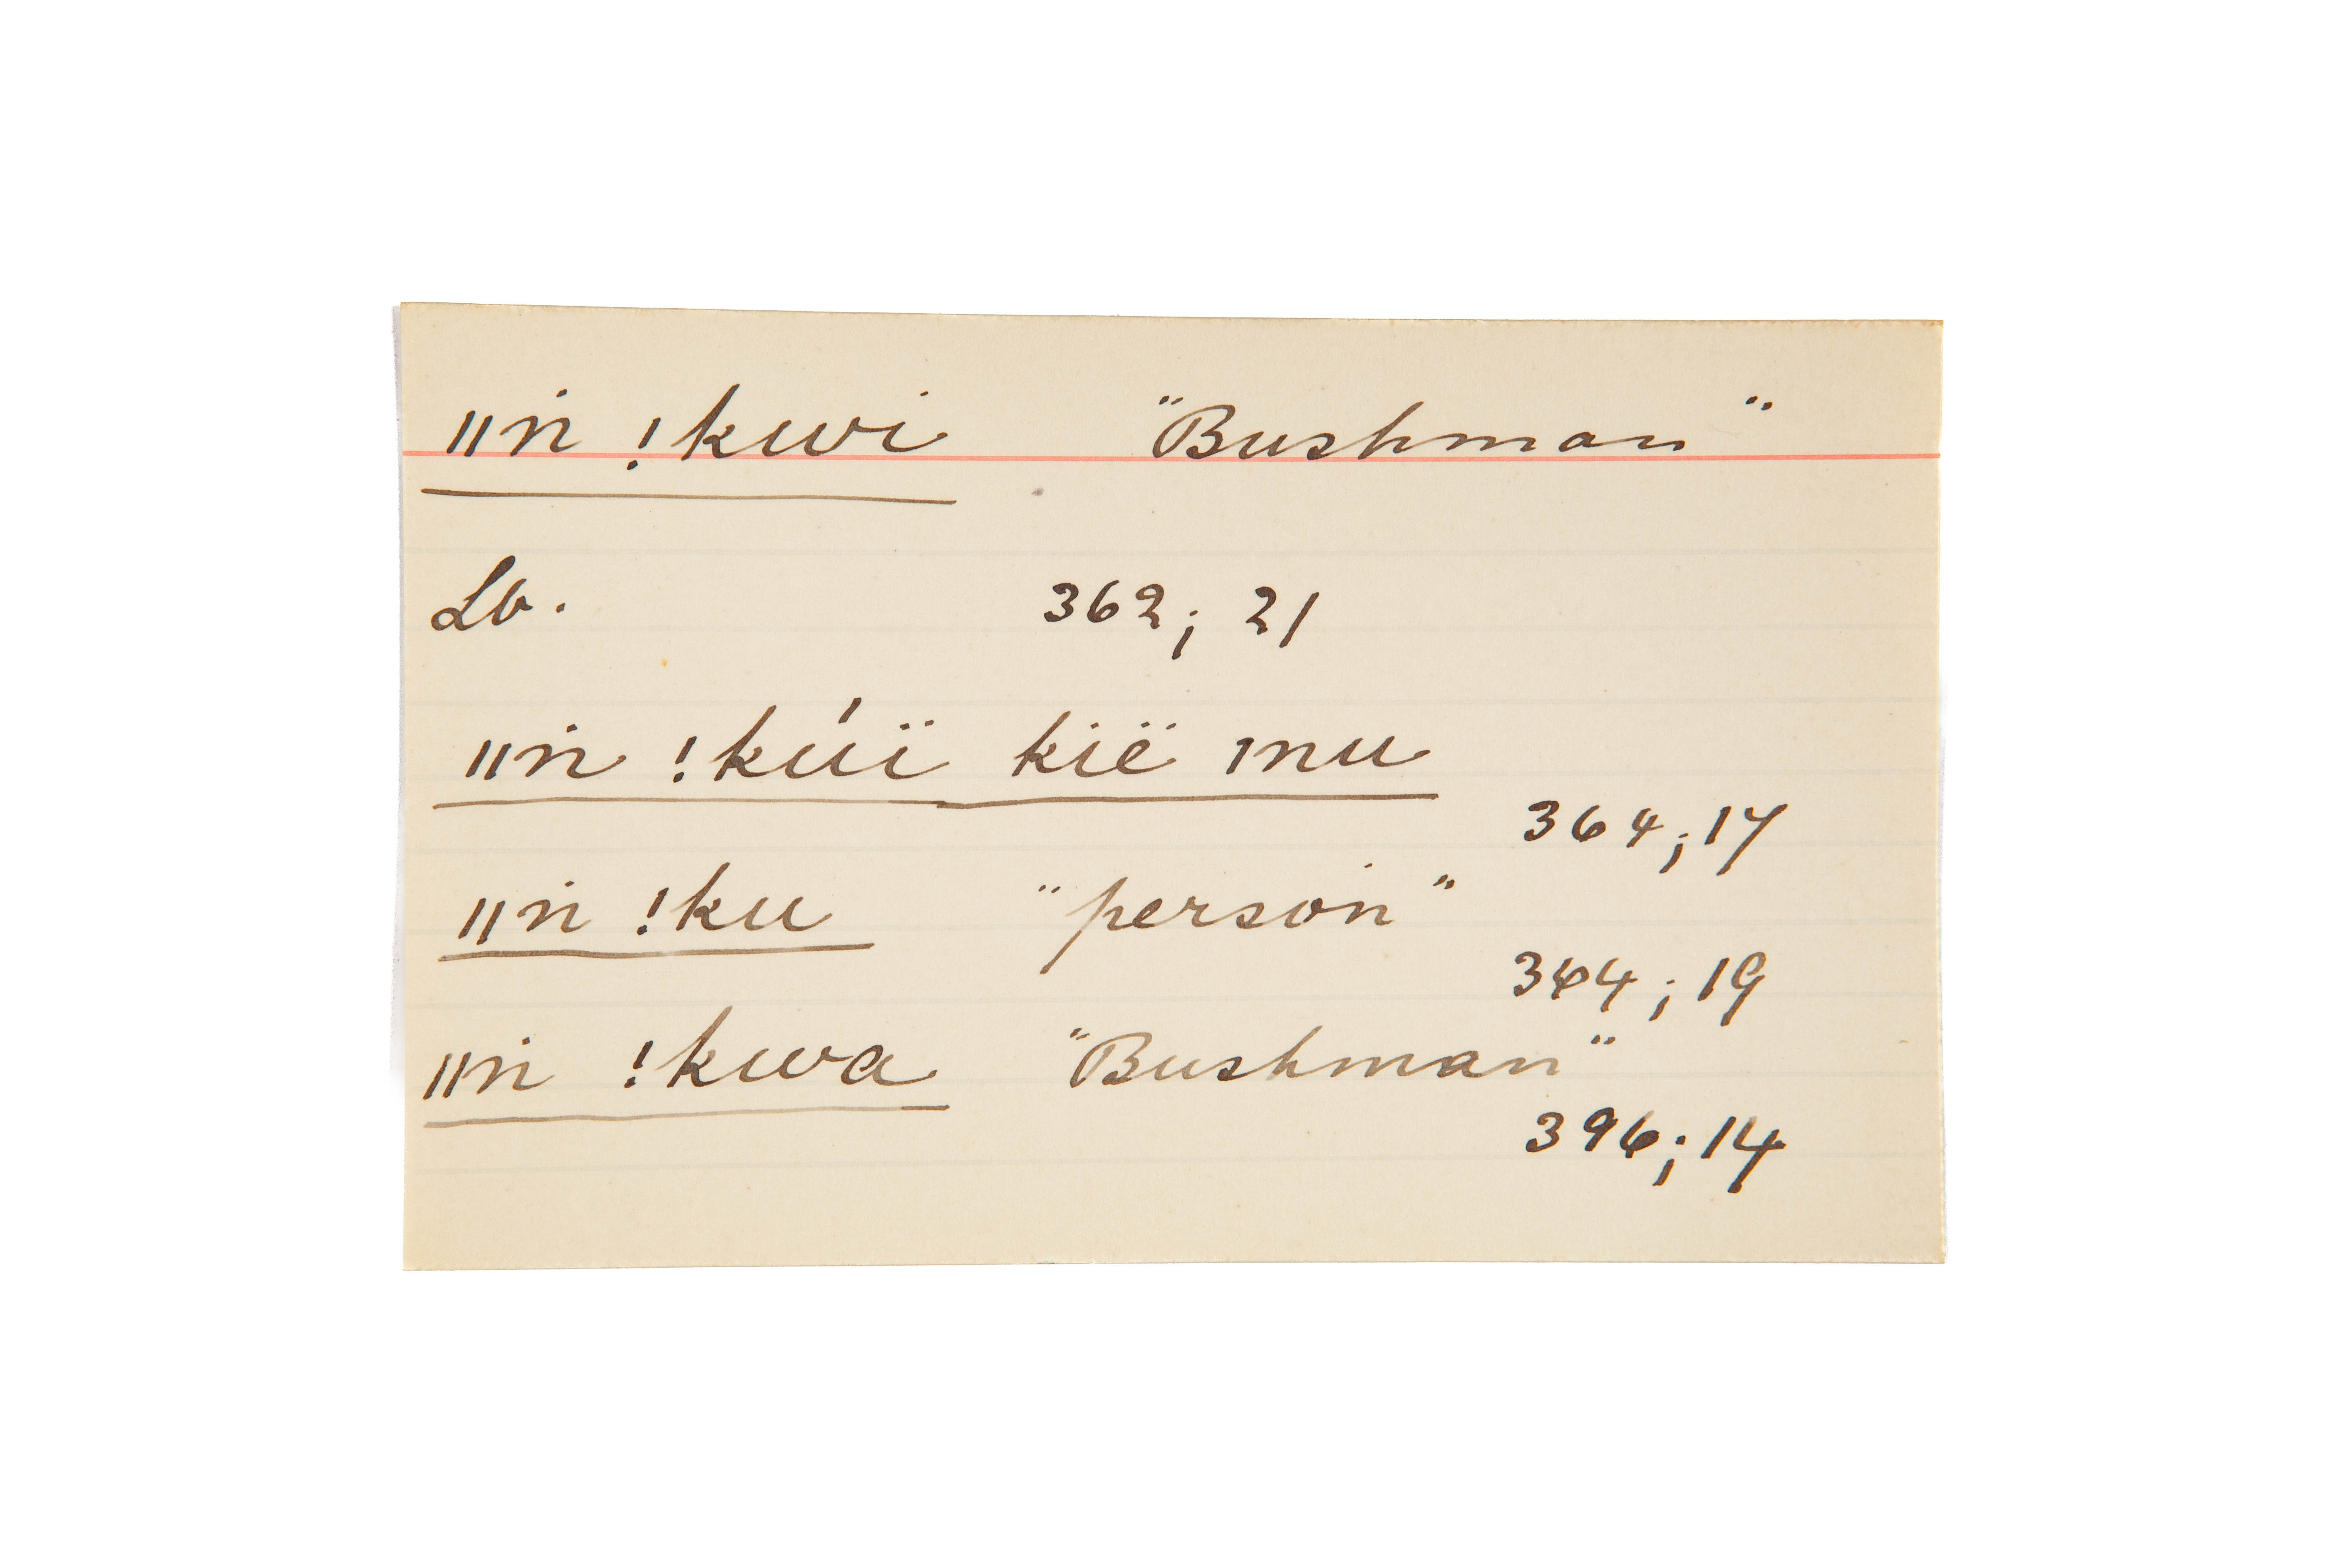 ǁṅ !kwi "Bushman"
Lb. 362; 21
ǁṅ !kúï kië ınu
364; 17
ǁṅ !ku "person"
344; 19
ǁṅ !kwa "Bushman"
396; 14